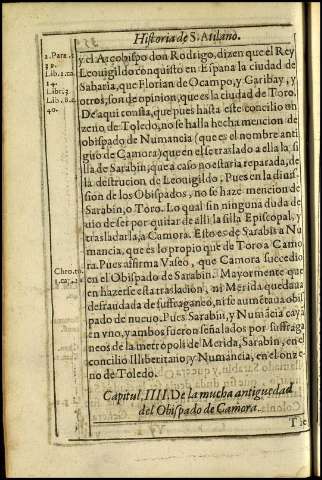 Historia de S. Atilano.
2. Para. 1
Lib. 2. ca.
14.
Lib. 7.
Lib. 8. c.
40.
y el Arçobispo don Rodrigo, dizen que el Rey
Leouigildo conquisto en Espana la ciudad de
Sabaria, que Florian de Ocampo, y Garibay, y
otros, son de opinion, que es la ciudad de Toro.
De aqui consta, que pues hasta este concilio on
zeno de Toledo, no se halla hecha mencion de
obispado de Numancia (que es el nombre anti
guo de Camora) que en el se traslado a ella la si
lla de Sarabin; que a caso no estaria reparada, de
la destrucion de Leouigildo, Pues en la diuis-
sion de los Obispados, no se haze mencion de
Sarabin, o Toro. Lo qual sin ninguna duda de
uio de ser por quitar de alli la silla Episcopal, y
trasladarla, a Camora. Esto es de Sarabis a Nu
mancia, que es lo propio que de Toro a Camo
ra. Pues affirma Vaseo, que Camora succedio
Chro. to.
en el Obispado de Sarabin. Mayormente que
en hazerse esta traslacion, ni Merida quedaua
defraudada de suffraganeo, ni se aumẽtaua obis
pado de nueuo. Pues Sarabin, y Numãcia caya
en vno, y ambos fueron señalados por suffraga
neos de la metropoli de Merida, Sarabin, en el
concilio Illiberitano, y Numancia, en el onze-
no de Toledo.
Capitul. IIII. De la mucha antiguedad
del Obispado de Camora.
Tie